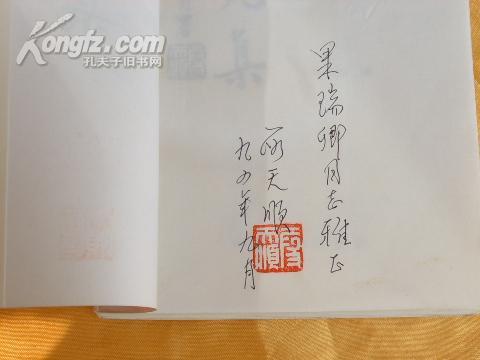 Kongfz.com
孔夫子旧书网
果瑞卿同志雅正
段天顺
九四年九月